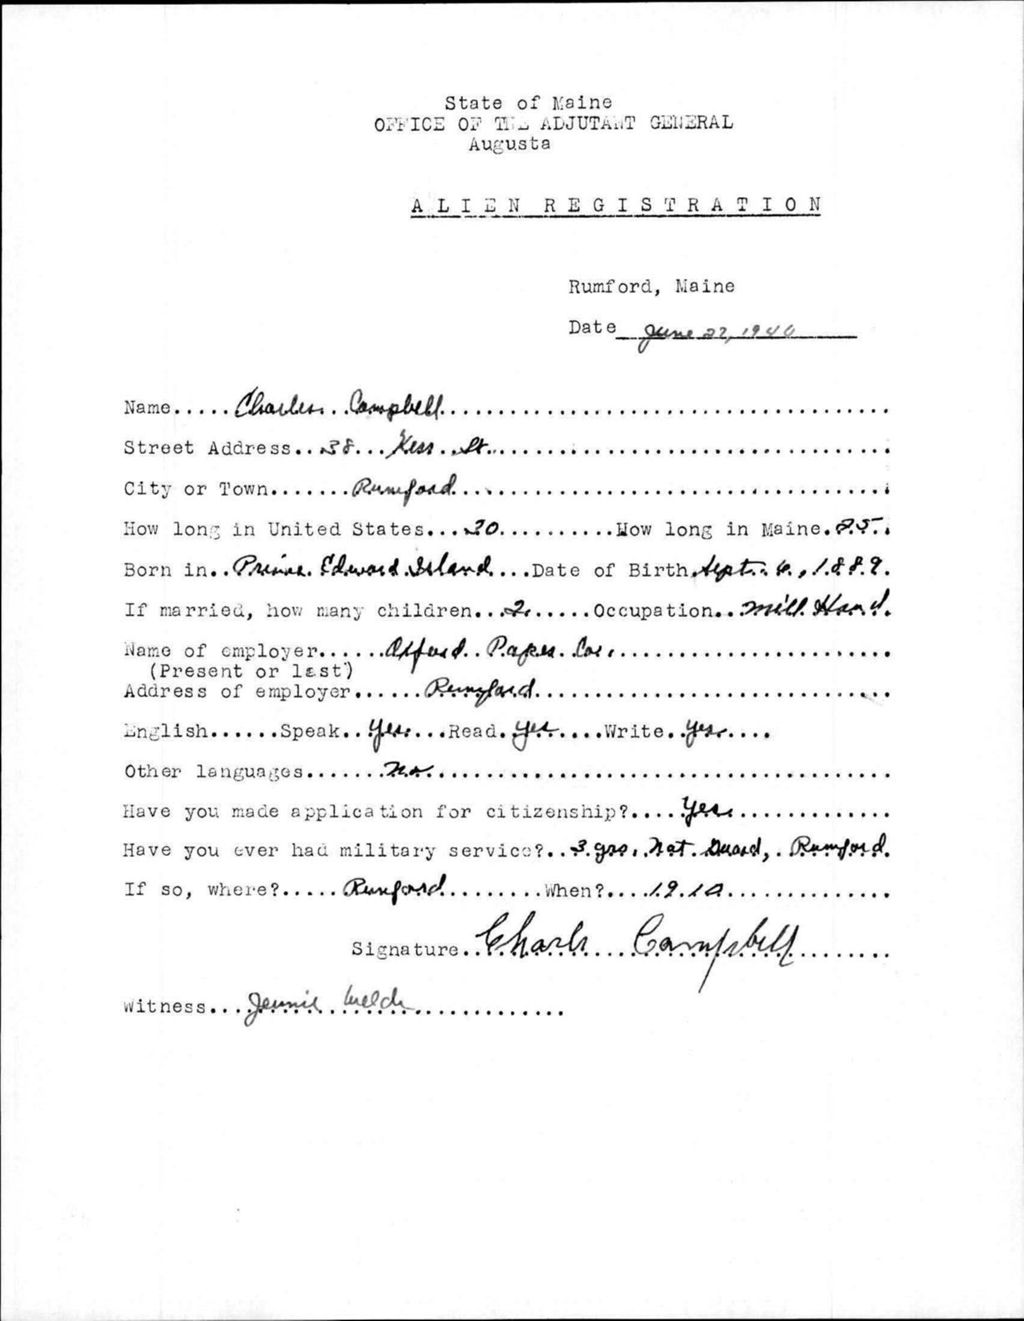 State of Maine
OFFICE OF THE ADJUTANT GENERAL
Augusta
ALIEN REGISTRATION
Rumford, Maine
Date June 22, 1940
Name.....Charles Campbell
Street Address..38... St.
City or Town.......Rumford
How long in United States...30..........How long in Maine.25.
Born in..Prince Edward Island....Date of Birth.Sept. 6, 1889.
If married, how many children...2......Occupation..Mill Hand.
Name of employer......Oxford Paper Co.
(Present or last)
Address of employer......Rumford
English......Speak..Yes...Read.Yes.....Write..Yes....
Other languages.......No.
Have you made application for citizenship?....Yes
Have you ever had military service?..3 yrs. Nat. Guard, Rumford.
If so, where?.....Rumford.........When?....1910
Signature..Charls Campbell
Witness...Jennie Welch